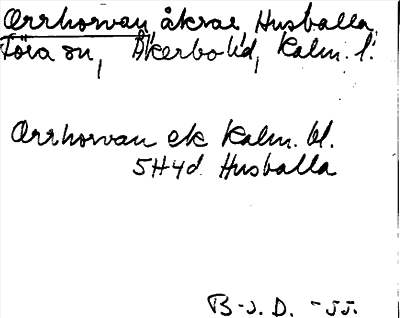 Orrhorvan åkrar, Husballa,
Föra sn, Åkerbo hd, Kalm. l.
Orrhorvan ek Kalm. bl.
5H4d Husballa
B-s. D. -55.